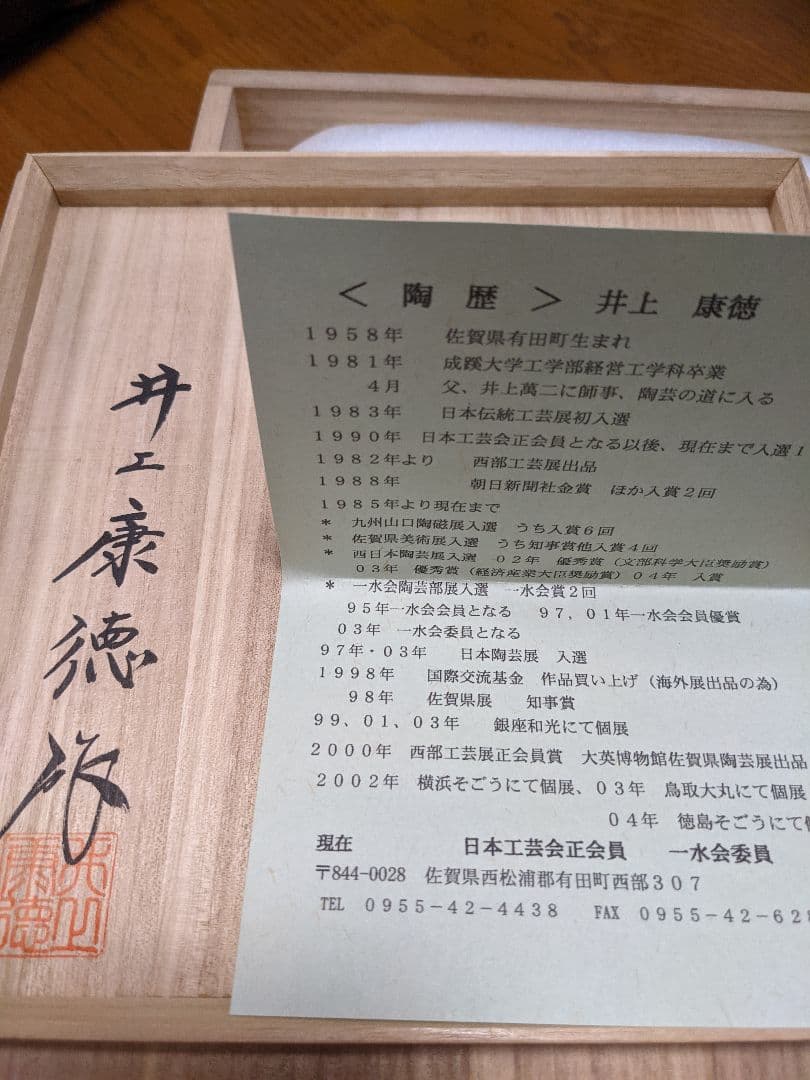 井上康徳作
井上康徳
＜ 陶 歴 ＞ 井上 康徳
１９５８年 佐賀県有田町生まれ
１９８１年 成蹊大学工学部経営工学科卒業
４月 父、井上萬二に師事、陶芸の道に入る
１９８３年 日本伝統工芸展初入選
１９９０年 日本工芸会正会員となる以後、現在まで入選１
１９８２年より 西部工芸展出品
１９８８年 朝日新聞社金賞 ほか入賞２回
１９８５年より現在まで
＊ 九州山口陶磁展入選 うち入賞６回
＊ 佐賀県美術展入選 うち知事賞他入賞４回
＊ 西日本陶芸展入選 ０２年 優秀賞（文部科学大臣奨励賞）
０３年 優秀賞（経済産業大臣奨励賞）０４年 入賞
＊ 一水会陶芸部展入選 一水会賞２回
９５年一水会会員となる ９７，０１年一水会会員優賞
０３年 一水会委員となる
９７年・０３年 日本陶芸展 入選
１９９８年 国際交流基金 作品買い上げ（海外展出品の為）
９８年 佐賀県展 知事賞
９９、０１、０３年 銀座和光にて個展
２０００年 西部工芸展正会員賞 大英博物館佐賀県陶芸展出品
２００２年 横浜そごうにて個展、０３年 鳥取大丸にて個展
０４年 徳島そごうにて個
現在 日本工芸会正会員 一水会委員
〒844-0028 佐賀県西松浦郡有田町西部３０７
TEL ０９５５－４２－４４３８ FAX ０９５５－４２－６２８